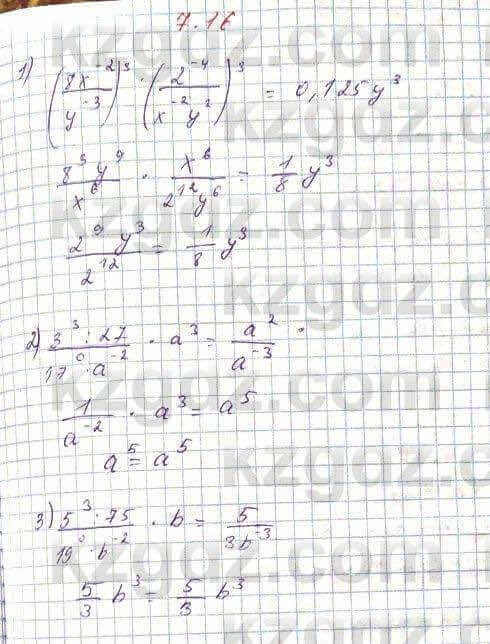 7.16
1) (8x^-2 / y^-3)^3 · (2^-4 / x^-2 y^2)^3 = 0,125y^3
8^3 y^9 / x^6 · x^6 / 2^12 y^6 = 1/8 y^3
2^9 y^3 / 2^12 = 1/8 y^3
2) 3^3 : 27 / 17^0 · a^-2 · a^3 = a^2 / a^-3
1 / a^-2 · a^3 = a^5
a^5 = a^5
3) 5^3 : 75 / 19^0 · b^-2 · b = 5 / 3b^-3
5/3 b^3 = 5/3 b^3
kzgdz.com